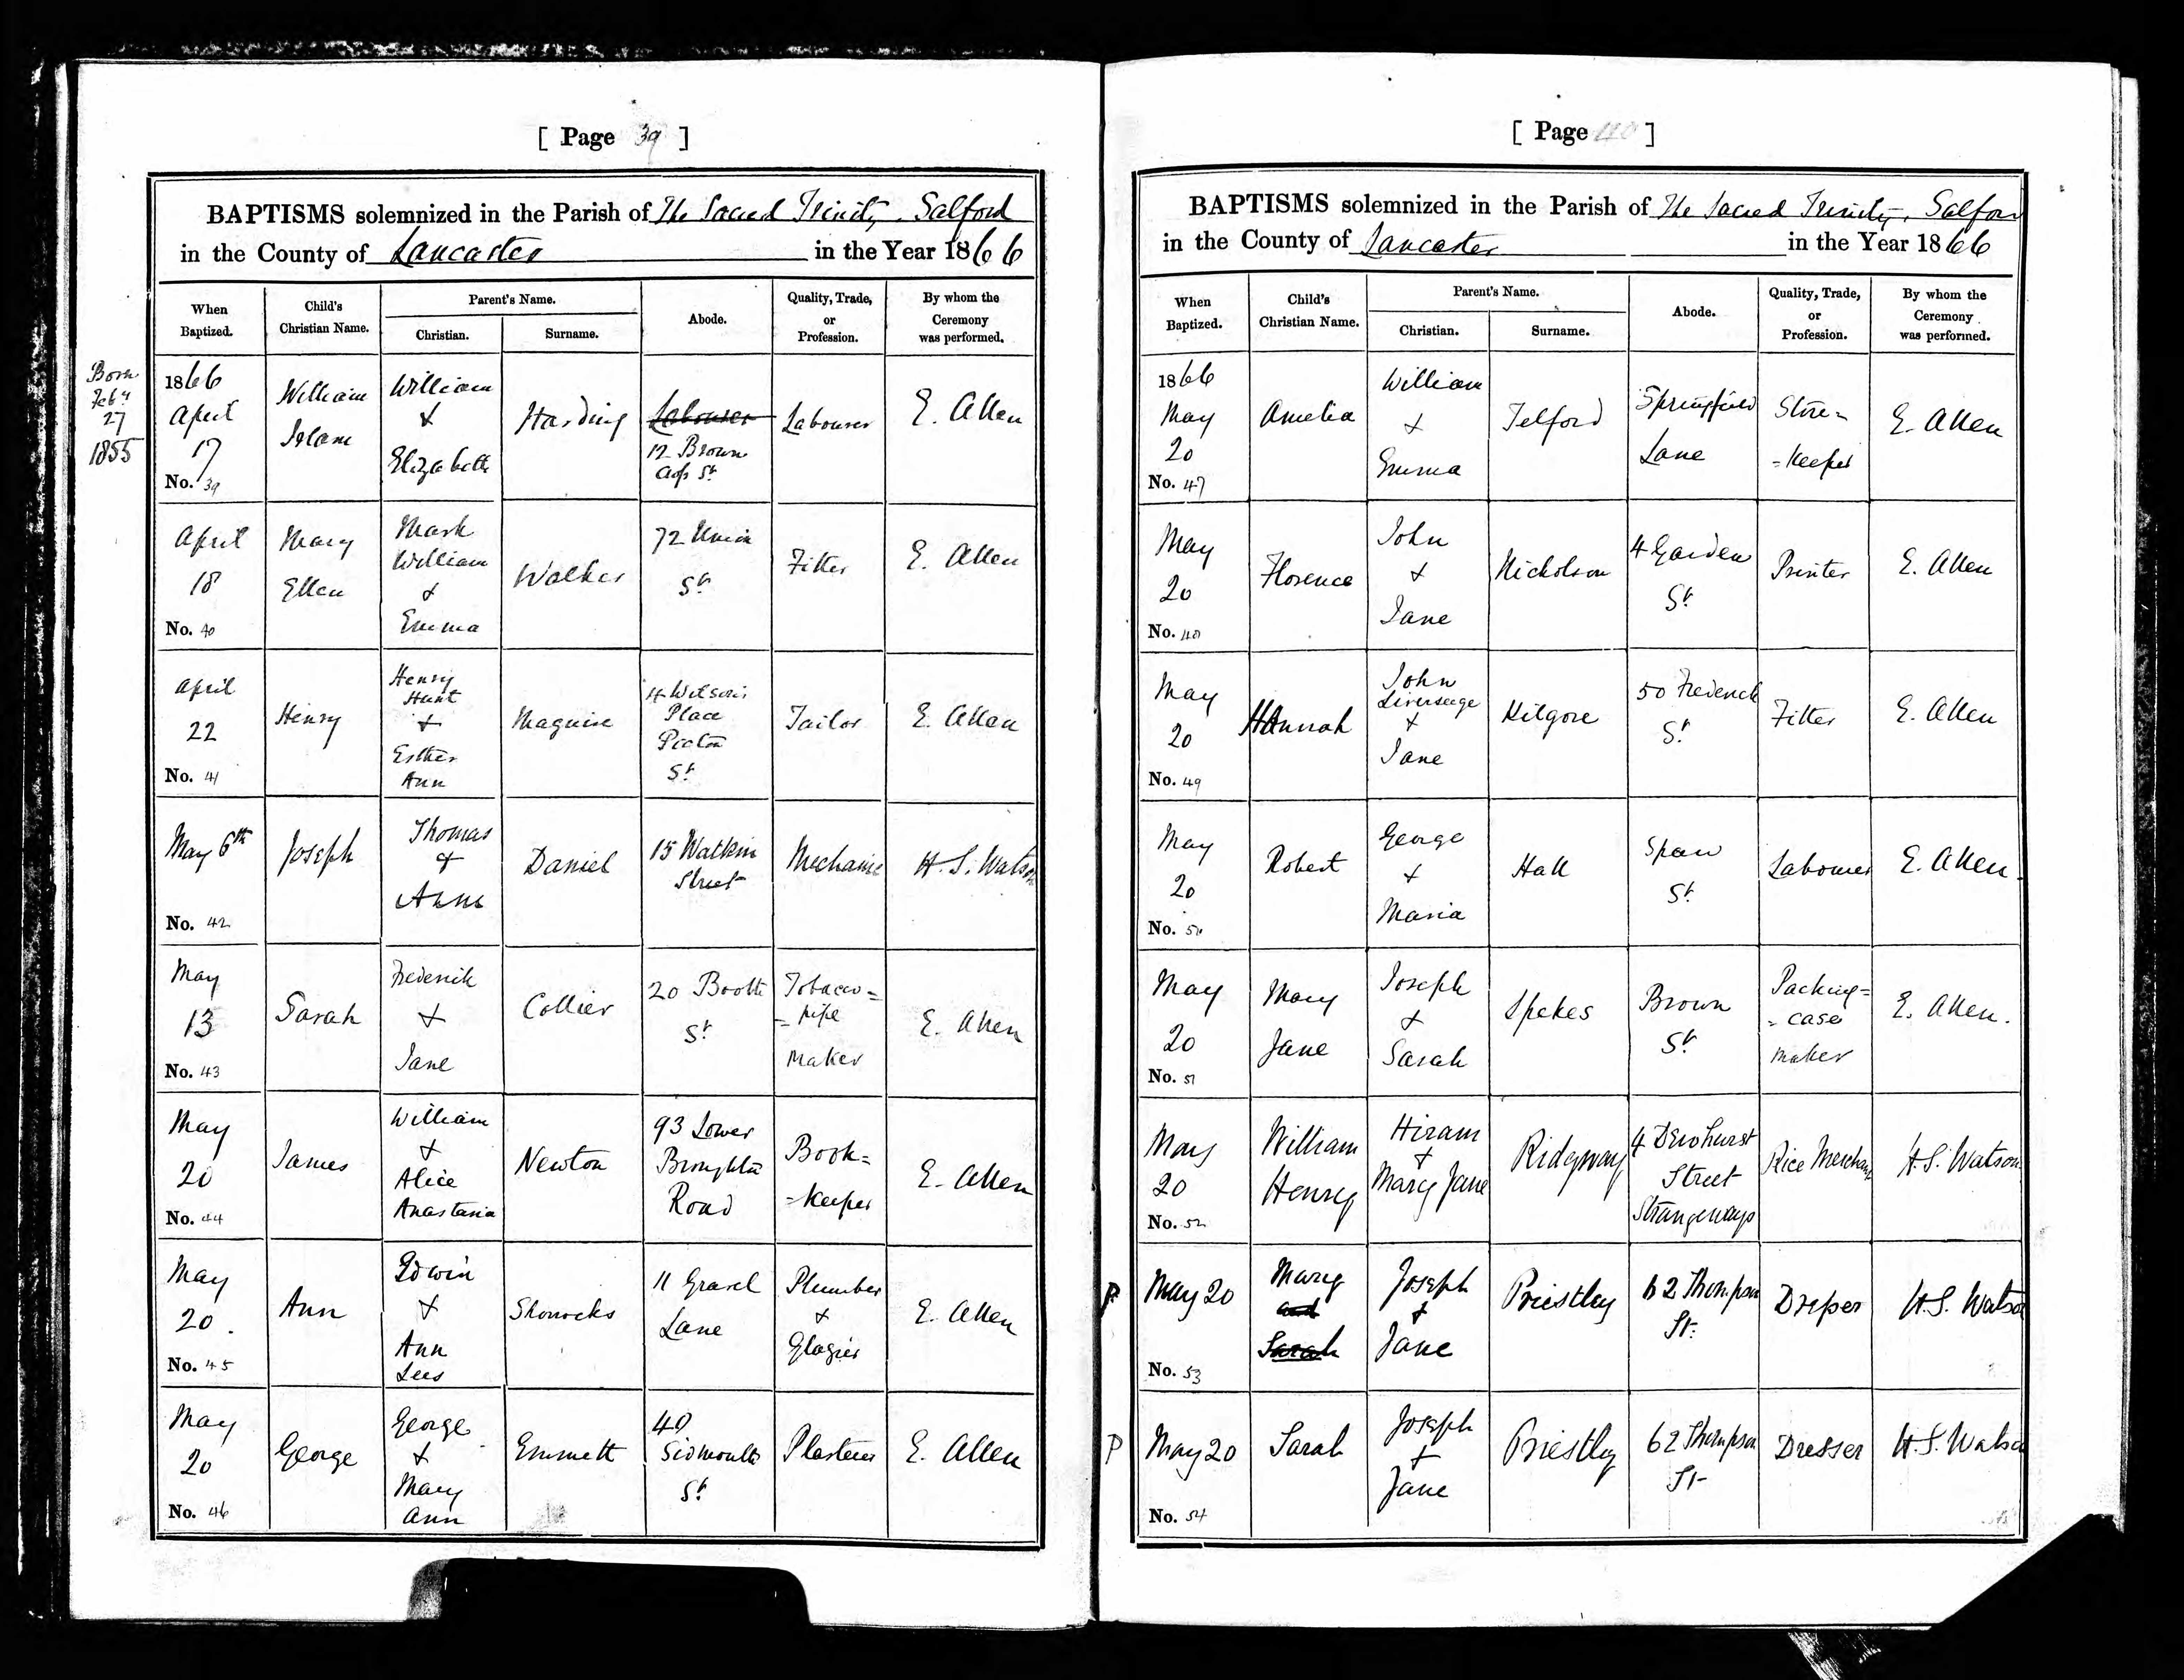 [ Page 39 ]
BAPTISMS solemnized in the Parish of The Sacred Trinity, Salford
in the County of Lancaster in the Year 1866
When Baptized.
Child's Christian Name.
Parent's Name.
Christian.
Surname.
Abode.
Quality, Trade, or Profession.
By whom the Ceremony was performed.
Born
Feby
27
1855
1866
April
17
No. 39
William
William
&
Elizabeth
Harding
Labourer
12 Brown
St
Labourer
E. Allen
April
18
No. 40
Mary
Ellen
Mark
William
&
Emma
Walker
72 Union
St
Fitter
E. Allen
April
22
No. 41
Henry
Henry
Hunt
&
Esther
Ann
Maguire
4 Wilson's
Place
Picton
St
Tailor
E. Allen
May 6th
No. 42
Joseph
Thomas
&
Anne
Daniel
15 Watkin
Street
Mechanic
H. S. Watson
May
13
No. 43
Sarah
Frederick
&
Jane
Collier
20 Booth
St
Tobacco=
=pipe
Maker
E. Allen
May
20
No. 44
James
William
&
Alice
Anastasia
Newton
93 Lower
Broughton
Road
Book=
=keeper
E. Allen
May
20.
No. 45
Ann
Edwin
&
Ann
Lees
Shorrocks
11 Gravel
Lane
Plumber
&
Glazier
E. Allen
May
20
No. 46
George
George
&
Mary
Ann
Emmett
40
Sidmouth
St
Plasterer
E. Allen
[ Page 40 ]
BAPTISMS solemnized in the Parish of The Sacred Trinity, Salford
in the County of Lancaster in the Year 1866
When Baptized.
Child's Christian Name.
Parent's Name.
Christian.
Surname.
Abode.
Quality, Trade, or Profession.
By whom the Ceremony was performed.
1866
May
20
No. 47
Amelia
William
&
Emma
Telford
Springfield
Lane
Store=
=keeper
E. Allen
May
20
No. 48
Florence
John
&
Jane
Nicholson
4 Garden
St
Printer
E. Allen
May
20
No. 49
Hannah
John
Liverseege
&
Jane
Kilgore
50 Frederick
St
Fitter
E. Allen
May
20
No. 50
Robert
George
&
Maria
Hall
Spaw
St
Labourer
E. Allen.
May
20
No. 51
Mary
Jane
Joseph
&
Sarah
Spekes
Brown
St
Packing=
=case
maker
E. Allen.
May
20
No. 52
William
Henry
Hiram
&
Mary Jane
Ridgway
4 Dewhurst
Street
Strangeways
Rice Merchant
H. S. Watson
P
May 20
No. 53
Mary
and
Sarah
Joseph
&
Jane
Priestley
62 Thompson
St.
Dresser
H. S. Watson
P
May 20
No. 54
Sarah
Joseph
&
Jane
Priestley
62 Thompson
St
Dresser
H. S. Watson